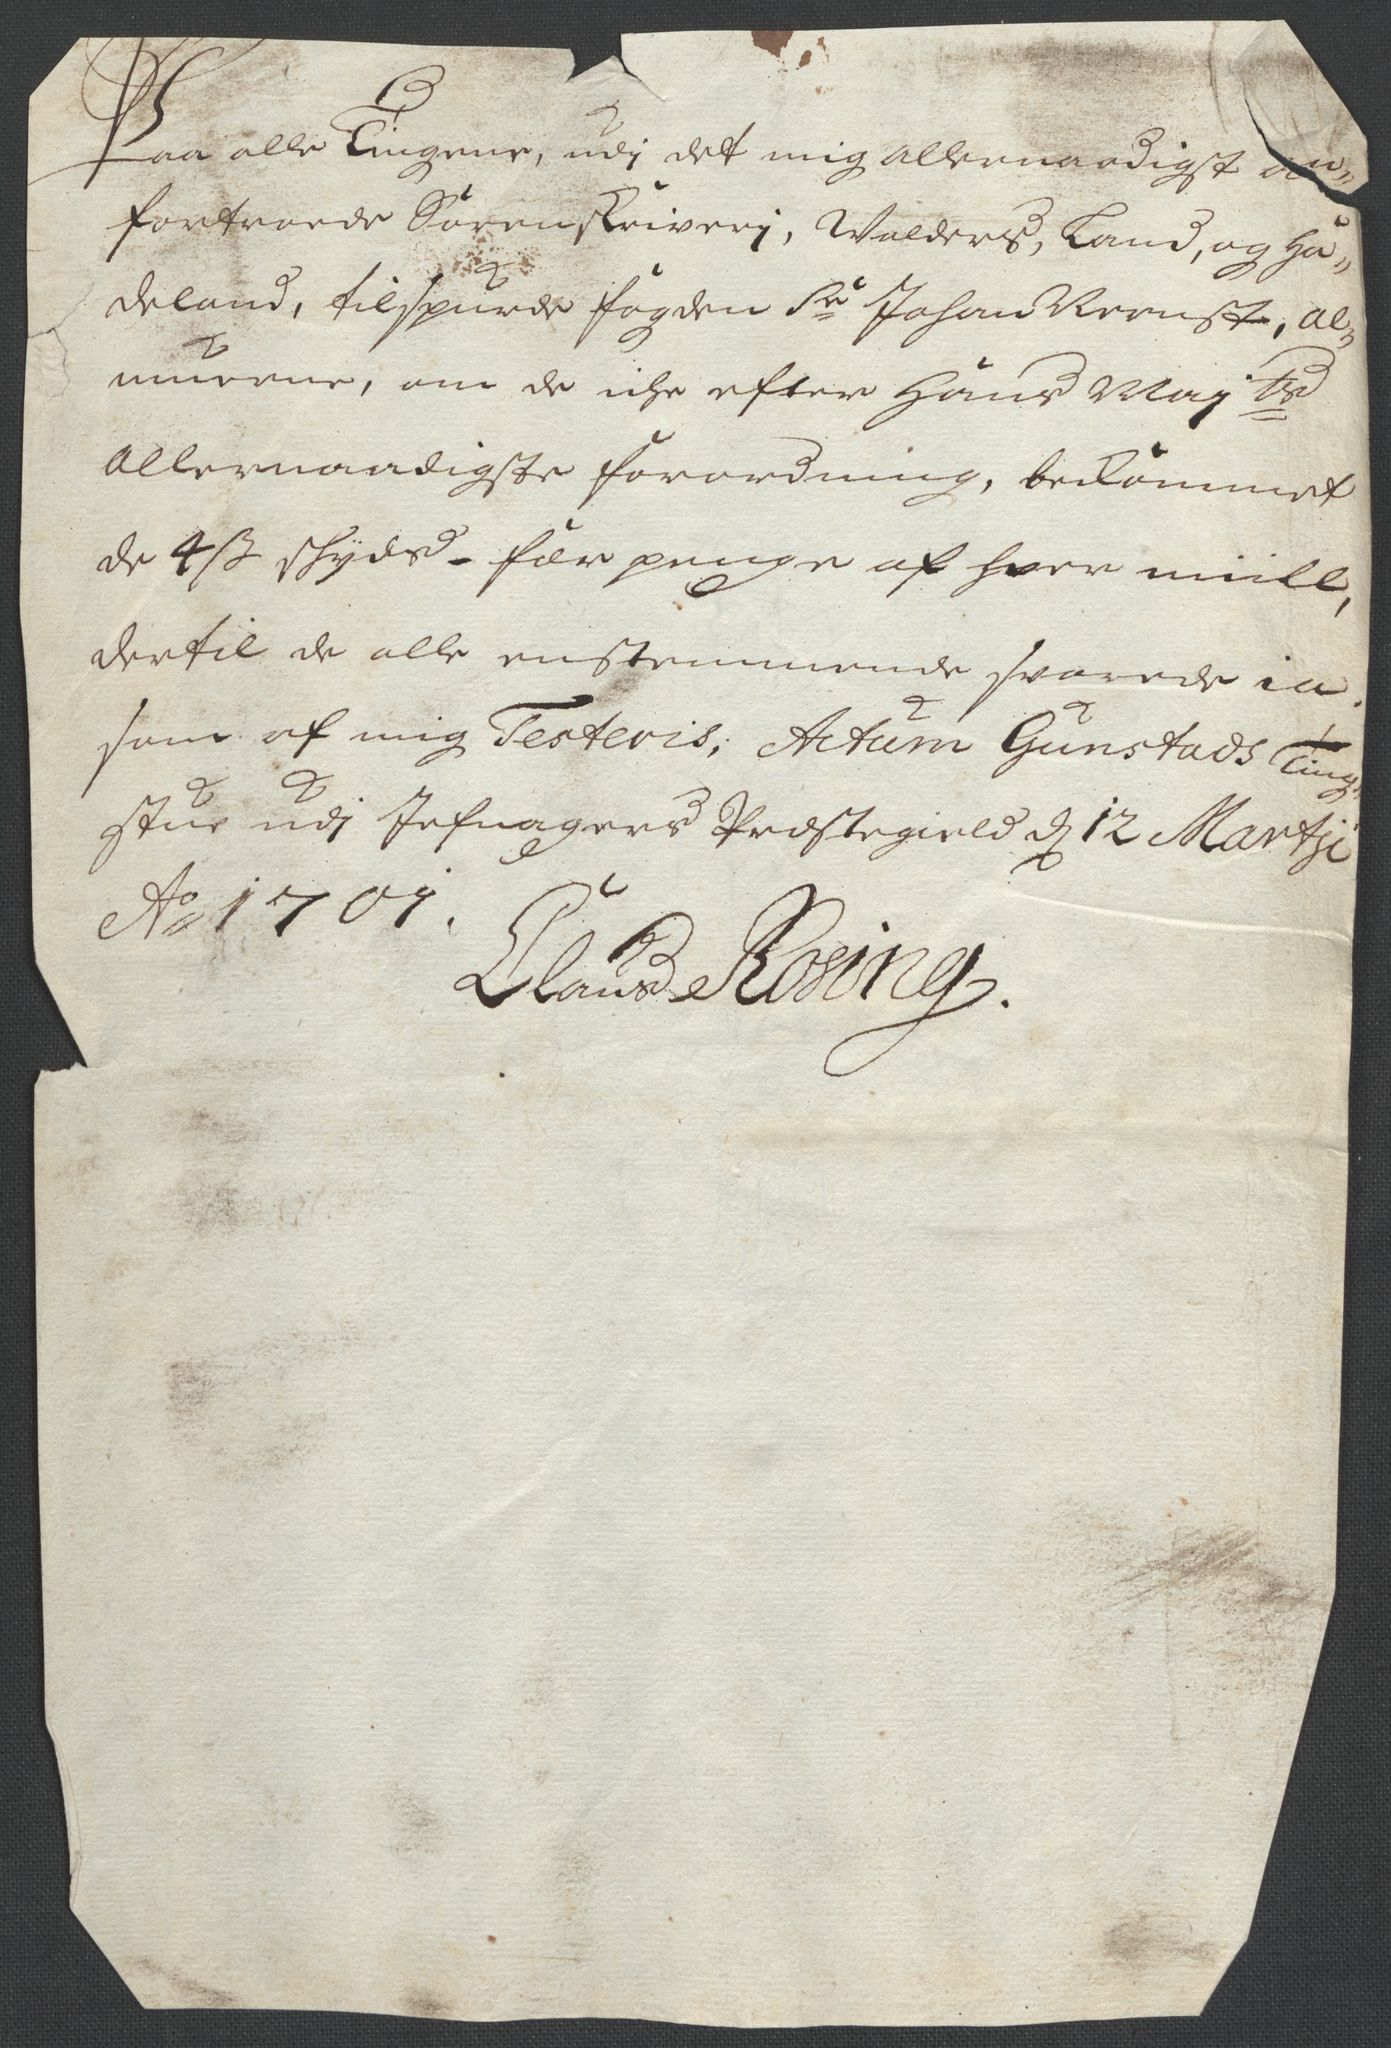 Paa alle Tingene, udj det mig allernaadigst an„
fortroede Sorenskriverj, Walders, Land, og Ha„
deland, tilspurde fogden Sr Johan Reenst, al„
muerne, om de iche efter Hans Mayts
Allernaadigste forordning, bekommet
de 4 ß schyds-fær penge af hver miill,
dertil de alle enstemmende svarede ia.
som af mig Testeris; Actum Gunstads Ting„
stue udj Jefnagers Prestegield d 12 Martji
Ao 1701.
Claus Rosing.